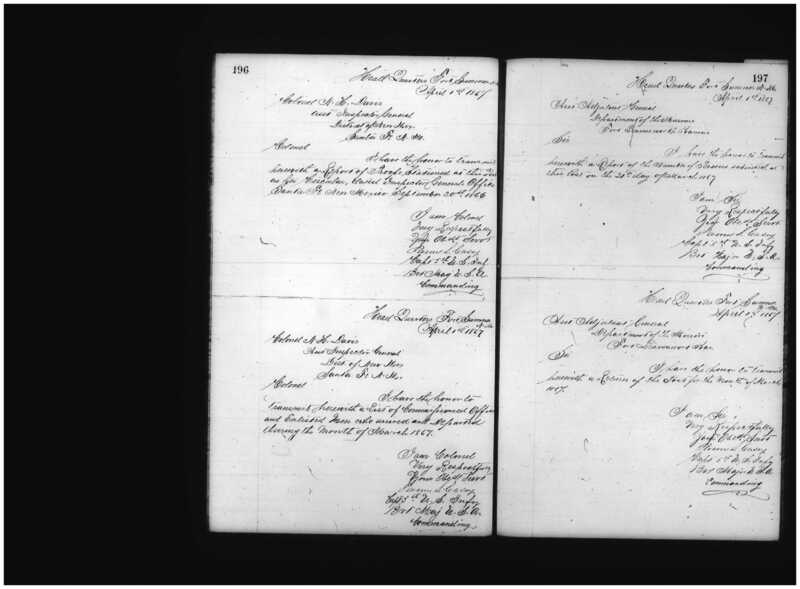 196
Head Quarters Fort Sumner
April 1st 1867
Colonel N. H. Davis
Asst Inspector General
District of New Mex
Santa Fé N. M.
Colonel
I have the honor to transmit
herewith a Report of Troops Stationed at this Post
as per Circular, Assist Inspector Generals Office
Santa Fé New Mexico September 20th 1866
I am Colonel
Very Respectfully
Your Obdt Servt
James L. Casey
Capt 5th U. S. Inf
Bvt Maj U. S. A
Commanding
Head Quarters Fort Sumner
N. Mex
April 1st 1867
Colonel N. H. Davis
Asst Inspector General
Dist. of New Mex
Santa Fé N. M.
Colonel
I have the honor to
transmit herewith a List of Commissioned Officers
and Enlisted Men who arrived and departed
during the Month of March 1867.
I am Colonel
Very Respectfully
Your Obdt Servt
James L. Casey
Capt 5th U. S. Infy
Bvt Maj U. S. A.
Commanding
197
Head Quarters Fort Sumner N. M.
April 1st 1867
Asst Adjutant General
Department of the Missouri
Fort Leavenworth Kansas
Sir
I have the honor to transmit
herewith a Report of the Number of Pieces
this Post on the 31st day of March 1867
I am Sir
Very Respectfully
Your Obdt Servt
James L. Casey
Capt 5th U. S. Infy
Bvt Major U. S. A.
Commanding
Head Quarters Fort Sumner
N. Mex
April 1867
Asst Adjutant General
Department of the Missouri
Fort Leavenworth Kas
Sir
I have the honor to transmit
herewith a Return of the Post for the Month of March
1867.
I am Sir
Very Respectfully
Your Obdt Servt
James L. Casey
Capt 5th U. S. Infy
Bvt Major U. S. A.
Commanding